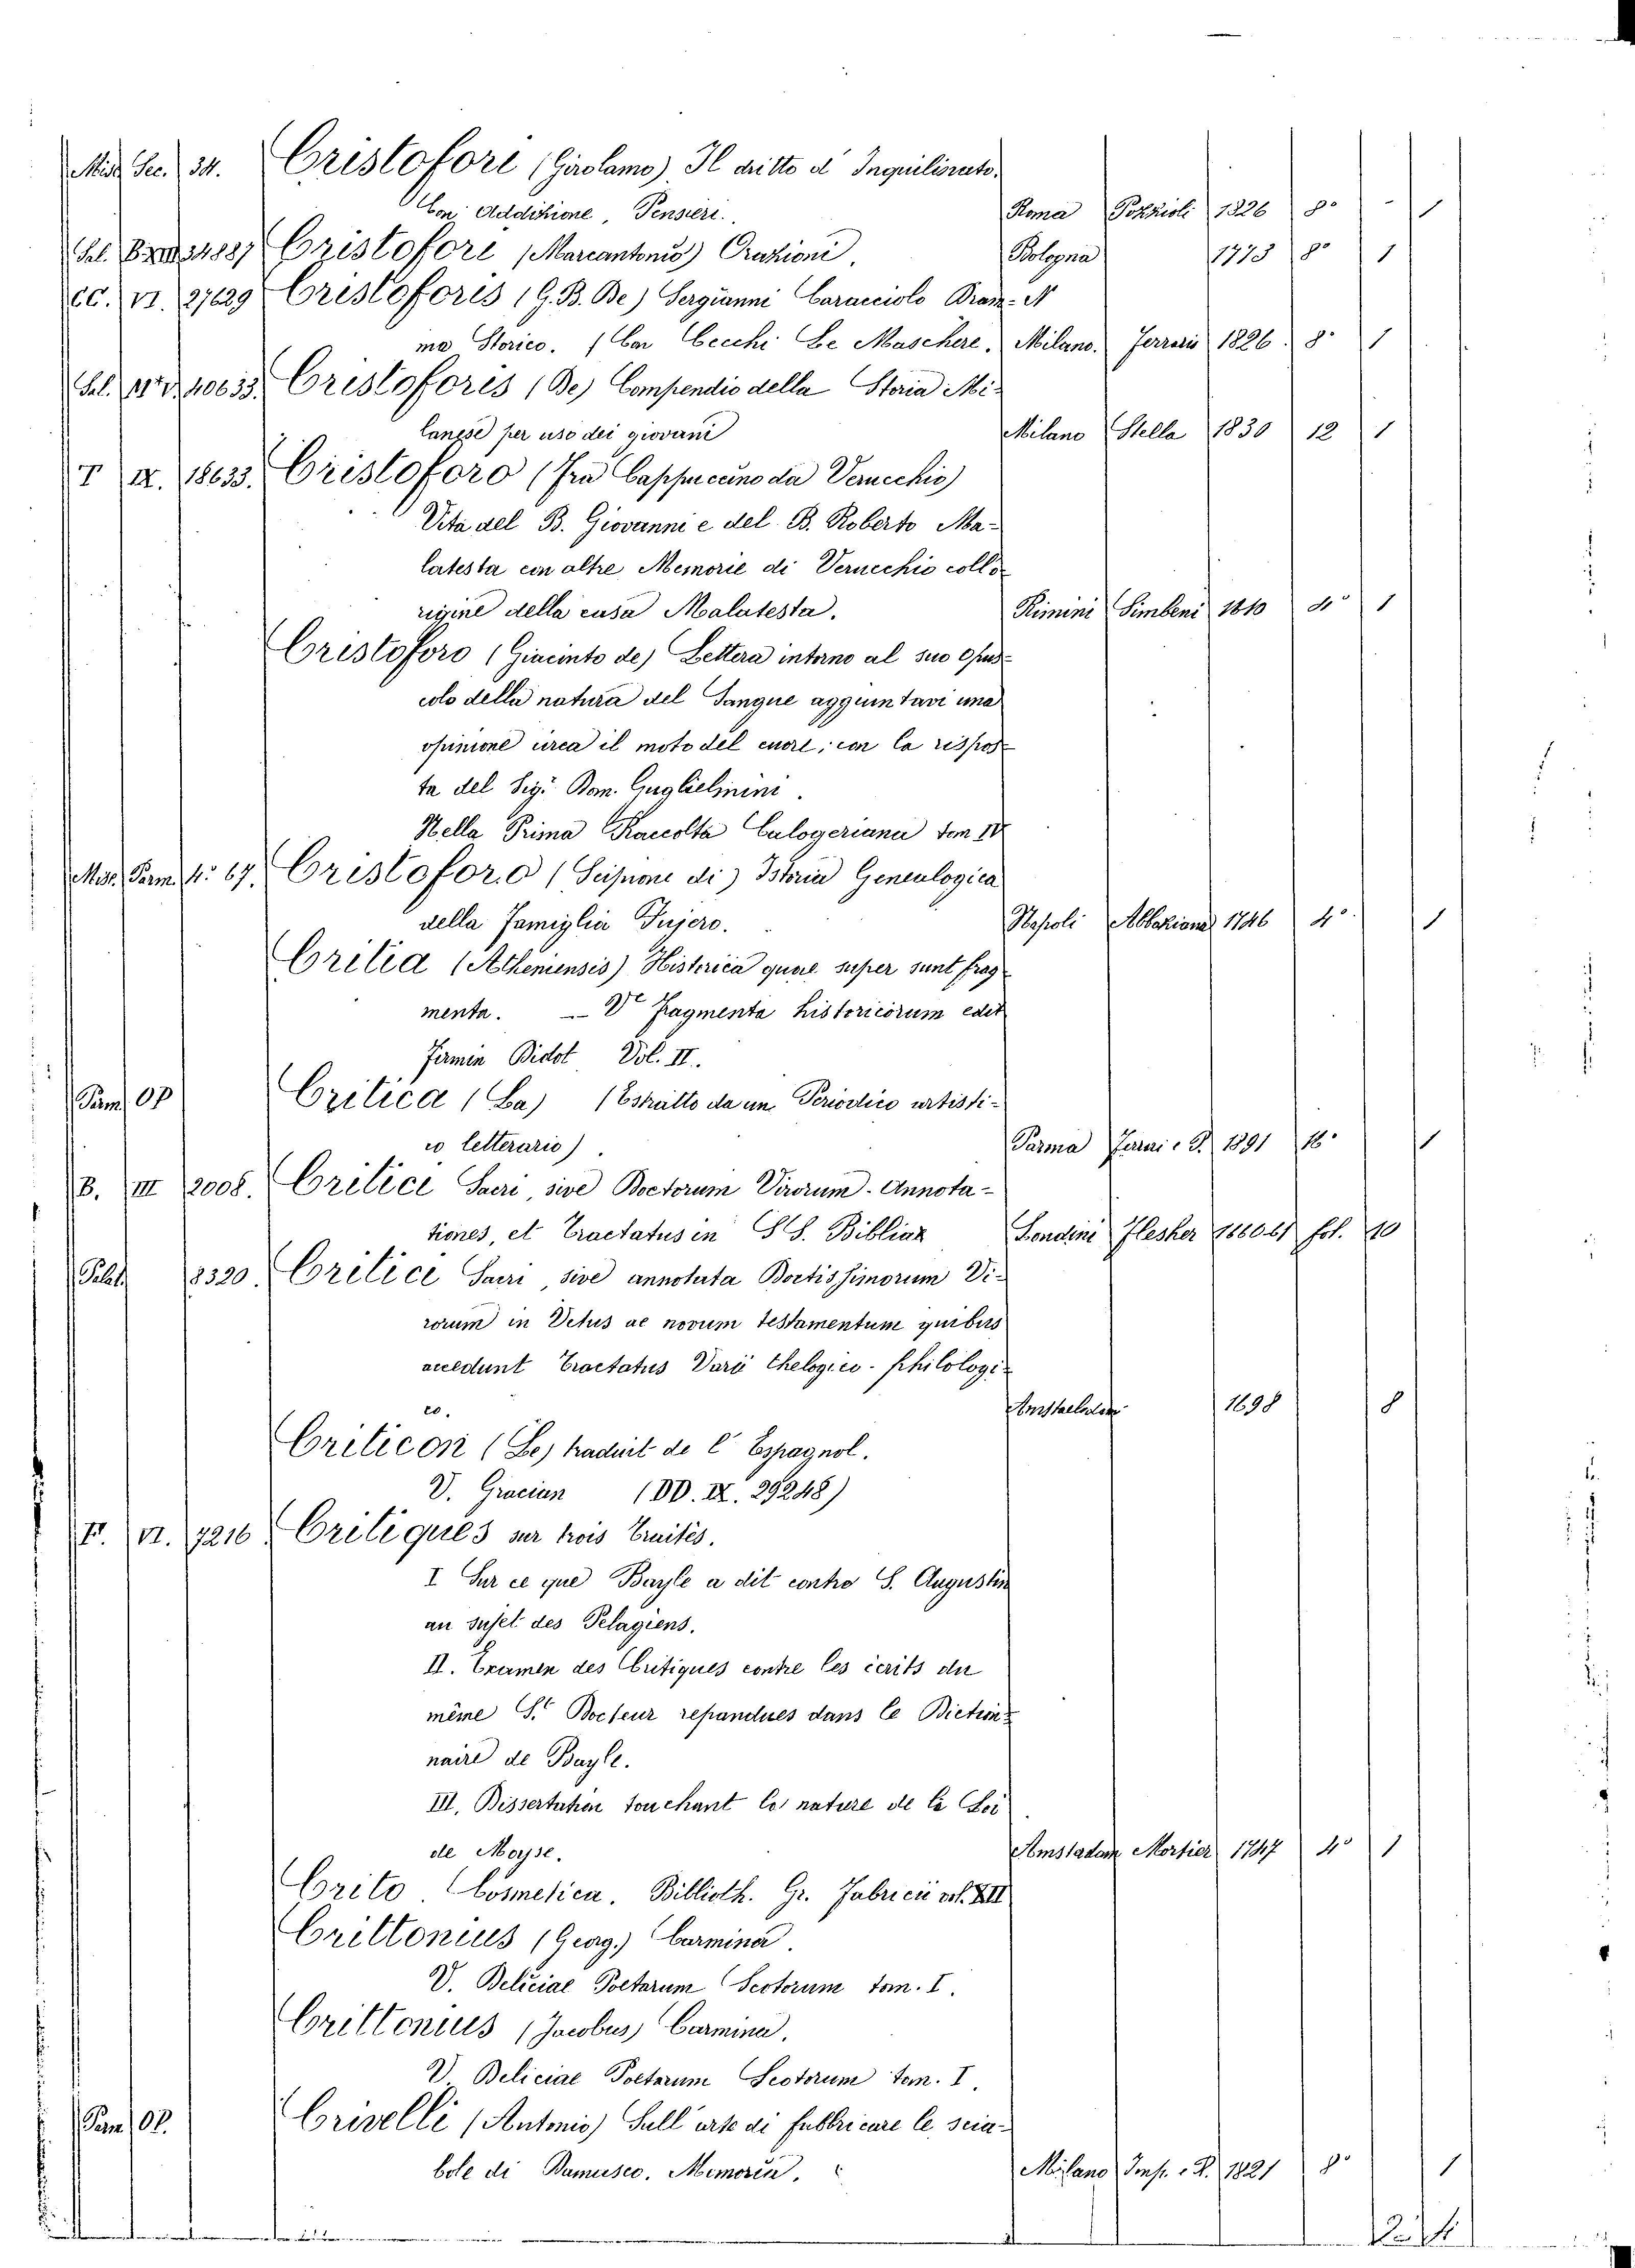 Misc. Sec. 34. Cristofori (Girolamo) Il dritto d'Inquilinato.
Con Addizione, Pensieri. Roma Poggioli 1826 8º - 1
Sal. B. XIII 34887 Cristofori (Marcantonio) Orazioni. Bologna 1773 8º 1
CC. VI. 27629 Cristoforis (G. B. De) Sergianni Caracciolo Dram-
ma Storico. (Con Cecchi Le Maschere. Milano. Ferrario 1826. 8º 1
Sal. 40633. Cristoforis (De) Compendio della Storia Mi-
lanese per uso dei giovani Milano Stella 1830 12 1
T IX. 18633. Cristoforo (Fra Cappuccino da Verucchio)
Vita del B. Giovanni e del B. Roberto Ma-
latesta con altre Memorie di Verucchio coll'o-
rigine della casa Malatesta. Rimini Simbeni 1810 8º 1
Cristoforo (Giacinto de) Lettera intorno al suo opus-
colo della natura del Sangue aggiuntavi una
opinione circa il moto del cuore; con la rispos-
ta del Sigr. Dom. Guglielmini.
Nella Prima Raccolta Calogeriana tom IV
Misc. Parm. 4º 67. Cristoforo (Scipione di) Istoria Genealogica
della Famiglia Fujero. Napoli Abbaziana 1746 4º 1
Critia (Atheniensis) Historica quae super sunt frag-
menta. — Ve Fragmenta historicorum edit
Firmin Didot Vol. II.
Parm. OP Critica (La) (Estratto da un Periodico artisti-
co letterario). Parma Ferrari e P. 1891 16º 1
B. III 2008. Critici Sacri, sive Doctorum Virorum Annota-
tiones, et Tractatus in SS. Biblia Londini Flesher 1660.61 fol. 10
Palat. 8320. Critici Sacri, sive annotata Doctissimorum Vi-
rorum in Vetus ac novum testamentum quibus
accedunt Tractatus Varii thelogico-philologi-
co. Amstaelodam 1698 8
Criticon (Le) traduit de l'Espagnol.
V. Gracian (DD. IX. 29248)
VI. 7216 Critiques sur trois Traités.
I Sur ce que Bayle a dit contre S. Augustin
au sujet des Pelagiens.
II. Examen des Critiques contre les écrits du
même S.t Docteur repandues dans le Diction-
naire de Bayle.
III. Dissertation touchant la nature de la Loi
de Moyse. Amstadam Mortier 1747 4º 1
Crito. Cosmetica. Biblioth. Gr. Fabricii vol. XII
Crittonius (Georg.) Carmina.
V. Deliciae Poetarum Scotorum tom. I.
Crittonius (Jacobus) Carmina.
V. Deliciae Poetarum Scotorum tom. I.
Parm. OP. Crivelli (Antonio) Sull'arte di fabbricare le scia-
bole di Damasco. Memoria. Milano Imp. e R. 1821 8º 1